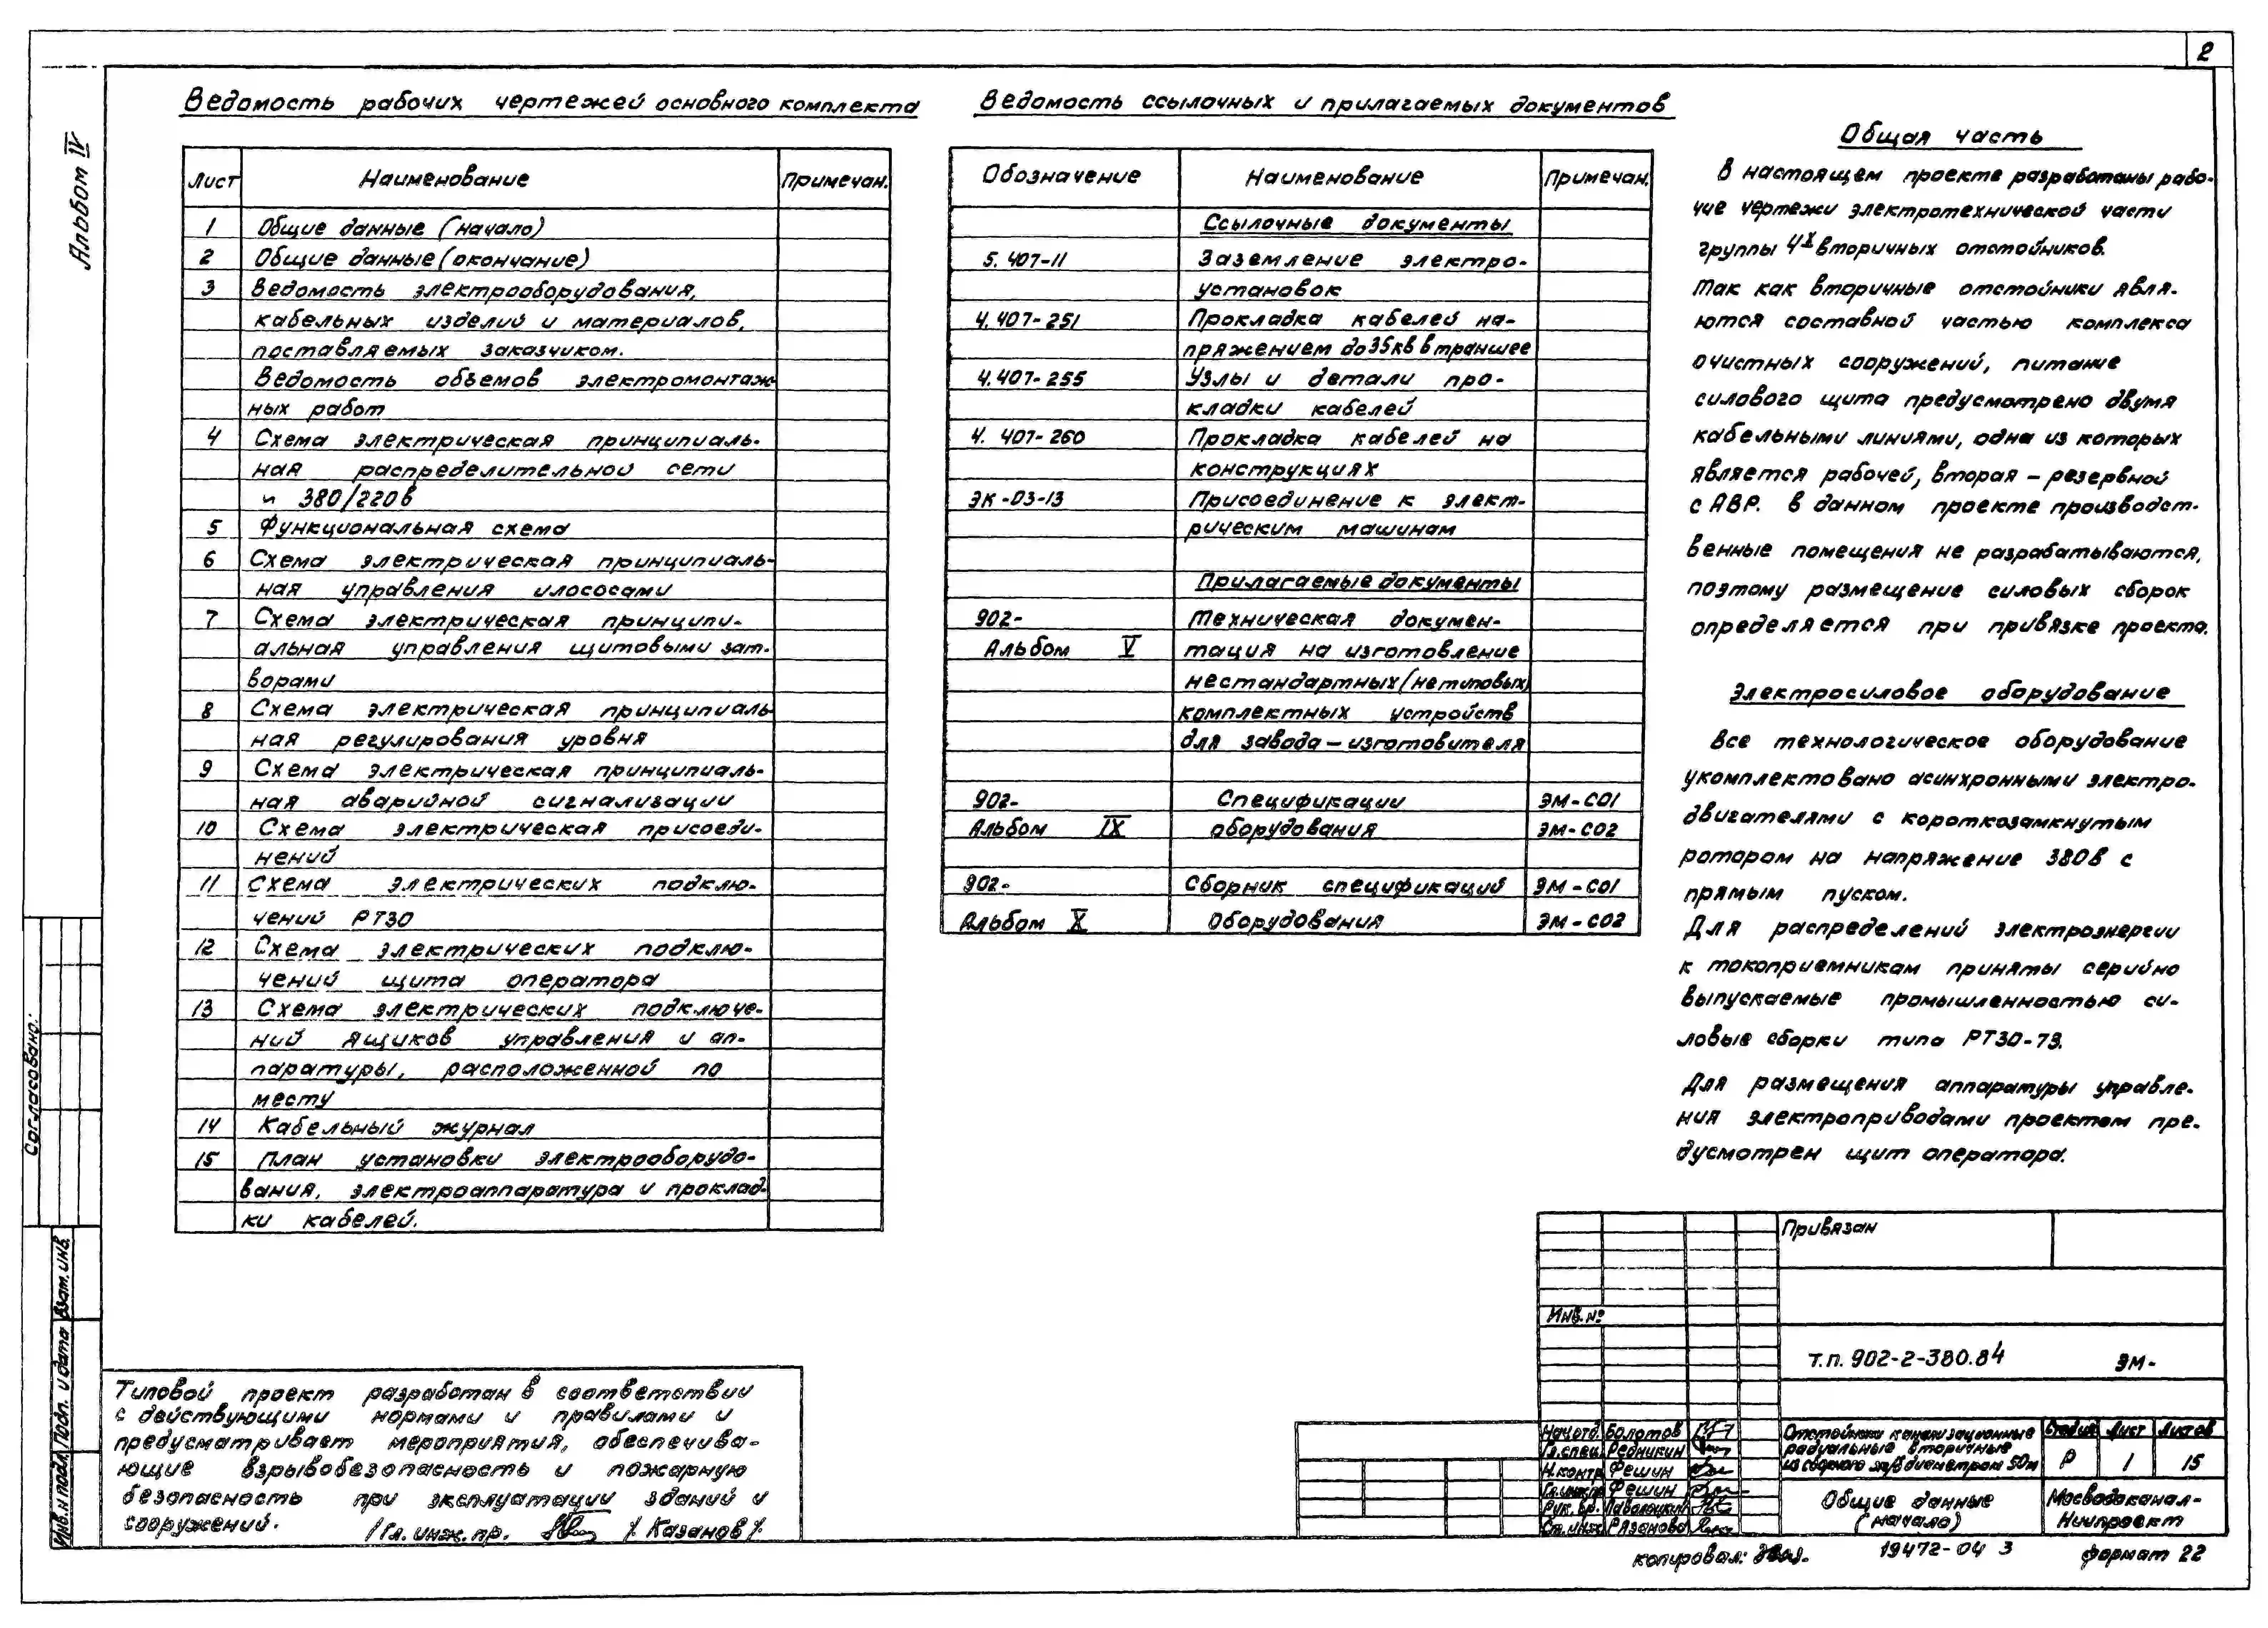 2
Альбом IV
Ведомость рабочих чертежей основного комплекта
Лист Наименование Примечан.
1 Общие данные (начало)
2 Общие данные (окончание)
3 Ведомость электрооборудования,
кабельных изделий и материалов,
поставляемых заказчиком.
Ведомость объемов электромонтаж-
ных работ
4 Схема электрическая принципиаль-
ная распределительной сети
~ 380/220в
5 Функциональная схема
6 Схема электрическая принципиаль-
ная управления илососами
7 Схема электрическая принципи-
альная управления щитовыми зат-
ворами
8 Схема электрическая принципиаль-
ная регулирования уровня
9 Схема электрическая принципиаль-
ная аварийной сигнализации
10 Схема электрическая присоеди-
нений
11 Схема электрических подклю-
чений РТ30
12 Схема электрических подклю-
чений щита оператора
13 Схема электрических подключе-
ний ящиков управления и ап-
паратуры, расположенной по
месту
14 Кабельный журнал
15 План установки электрооборудо-
вания, электроаппаратура и проклад-
ки кабелей.
Ведомость ссылочных и прилагаемых документов
Обозначение Наименование Примечан.
Ссылочные документы
5.407-11 Заземление электро-
установок
4.407-251 Прокладка кабелей на-
пряжением до 35кв в траншее
4.407-255 Узлы и детали про-
кладки кабелей
4.407-260 Прокладка кабелей на
конструкциях
ЭК-03-13 Присоединение к элект-
рическим машинам
Прилагаемые документы
902- Техническая докумен-
Альбом V тация на изготовление
нестандартных (нетиповых)
комплектных устройств
для завода - изготовителя
902- Спецификации ЭМ-СО1
Альбом IX оборудования ЭМ-СО2
902- Сборник спецификаций ЭМ-СО1
Альбом X Оборудования ЭМ-СО2
Общая часть
В настоящем проекте разработаны рабо-
чие чертежи электротехнической части
группы 4х вторичных отстойников.
Так как вторичные отстойники явля-
ются составной частью комплекса
очистных сооружений, питание
силового щита предусмотрено двумя
кабельными линиями, одна из которых
является рабочей, вторая - резервной
с АВР. В данном проекте производст-
венные помещения не разрабатываются,
поэтому размещение силовых сборок
определяется при привязке проекта.
Электросиловое оборудование
Все технологическое оборудование
укомплектовано асинхронными электро-
двигателями с короткозамкнутым
ротором на напряжение 380В с
прямым пуском.
Для распределений электроэнергии
к токоприемникам приняты серийно
выпускаемые промышленностью си-
ловые сборки типа РТ30-73.
Для размещения аппаратуры управле-
ния электроприводами проектом пре-
дусмотрен щит оператора.
Согласовано:
Инв.н подл. Подп. и дата Взат. инв.
Типовой проект разработан в соответствии
с действующими нормами и правилами и
предусматривает мероприятия, обеспечива-
ющие взрывобезопасность и пожарную
безопасность при эксплуатации зданий и
сооружений.
/Гл. инж. пр. /. Казанов /.
Привязан
Инв. №
Т.п. 902-2-380.84 ЭМ-
Нач отд. Болотов
Гл. спец. Редникин
Н.контр. Фешин
Гл.инж.пр. Фешин
Рук. гр.
Ст. инж. Рязанова
Отстойники канализационные
радиальные вторичные
из сборного ж/б диаметром 50м
Стадия Лист Листов
Р 1 15
Общие данные
(начало)
Мосводоканал-
Ниипроект
копировал:
19472-04 3
формат 22